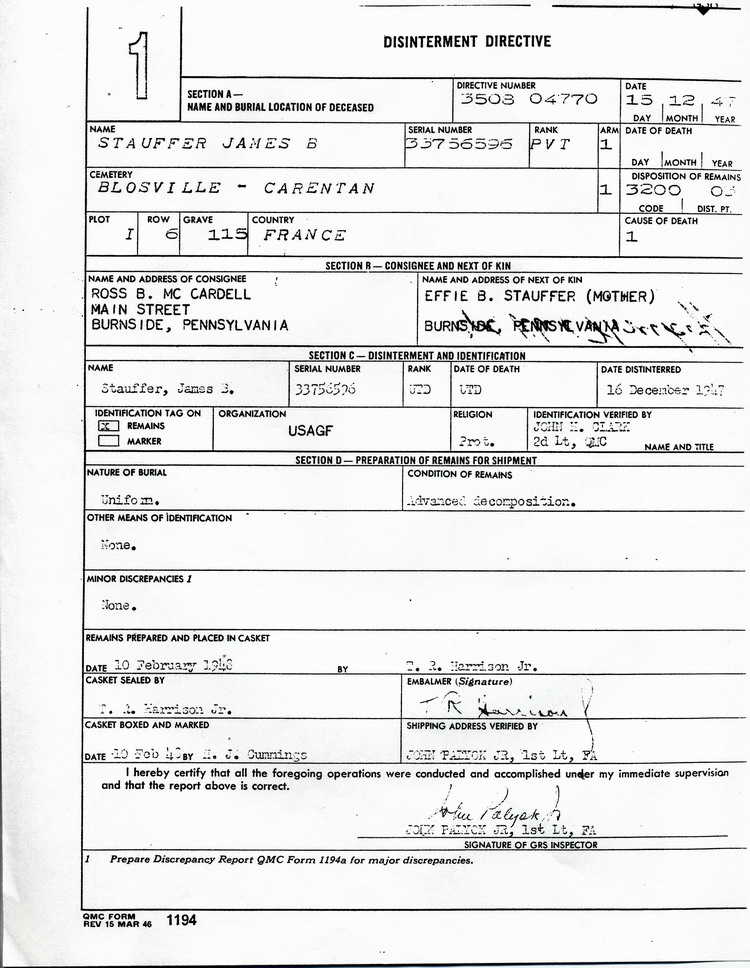 1
DISINTERMENT DIRECTIVE
SECTION A—
NAME AND BURIAL LOCATION OF DECEASED
DIRECTIVE NUMBER
3503 04770
DATE
15 12 47
DAY MONTH YEAR
NAME
STAUFFER JAMES B
SERIAL NUMBER
33756596
RANK
PVT
ARM
1
DATE OF DEATH
DAY MONTH YEAR
CEMETERY
BLOSVILLE - CARENTAN
1
DISPOSITION OF REMAINS
3200 03
CODE DIST. PT.
PLOT
I
ROW
6
GRAVE
115
COUNTRY
FRANCE
CAUSE OF DEATH
1
SECTION B — CONSIGNEE AND NEXT OF KIN
NAME AND ADDRESS OF CONSIGNEE
ROSS B. MC CARDELL
MAIN STREET
BURNSIDE, PENNSYLVANIA
NAME AND ADDRESS OF NEXT OF KIN
EFFIE B. STAUFFER (MOTHER)
BURNSIDE, PENNSYLVANIA
SECTION C — DISINTERMENT AND IDENTIFICATION
NAME
Stauffer, James B.
SERIAL NUMBER
33756596
RANK
UTD
DATE OF DEATH
UTD
DATE DISTINTERRED
16 December 1947
IDENTIFICATION TAG ON
x REMAINS
MARKER
ORGANIZATION
USAGF
RELIGION
Prot.
IDENTIFICATION VERIFIED BY
JOHN H. CLARK
2d Lt, QMC
NAME AND TITLE
SECTION D — PREPARATION OF REMAINS FOR SHIPMENT
NATURE OF BURIAL
Uniform.
CONDITION OF REMAINS
Advanced decomposition.
OTHER MEANS OF IDENTIFICATION
None.
MINOR DISCREPANCIES 1
None.
REMAINS PREPARED AND PLACED IN CASKET
DATE 10 February 1948 BY T. R. Harrison Jr.
CASKET SEALED BY
T. R. Harrison Jr.
EMBALMER (Signature)
T R Harrison
CASKET BOXED AND MARKED
DATE 10 Feb 48 BY H. J. Cummings
SHIPPING ADDRESS VERIFIED BY
JOHN PALYOK JR, 1st Lt, FA
I hereby certify that all the foregoing operations were conducted and accomplished under my immediate supervision
and that the report above is correct.
John Palyok Jr
JOHN PALYOK JR, 1st Lt, FA
SIGNATURE OF GRS INSPECTOR
1 Prepare Discrepancy Report QMC Form 1194a for major discrepancies.
QMC FORM
REV 15 MAR 46 1194